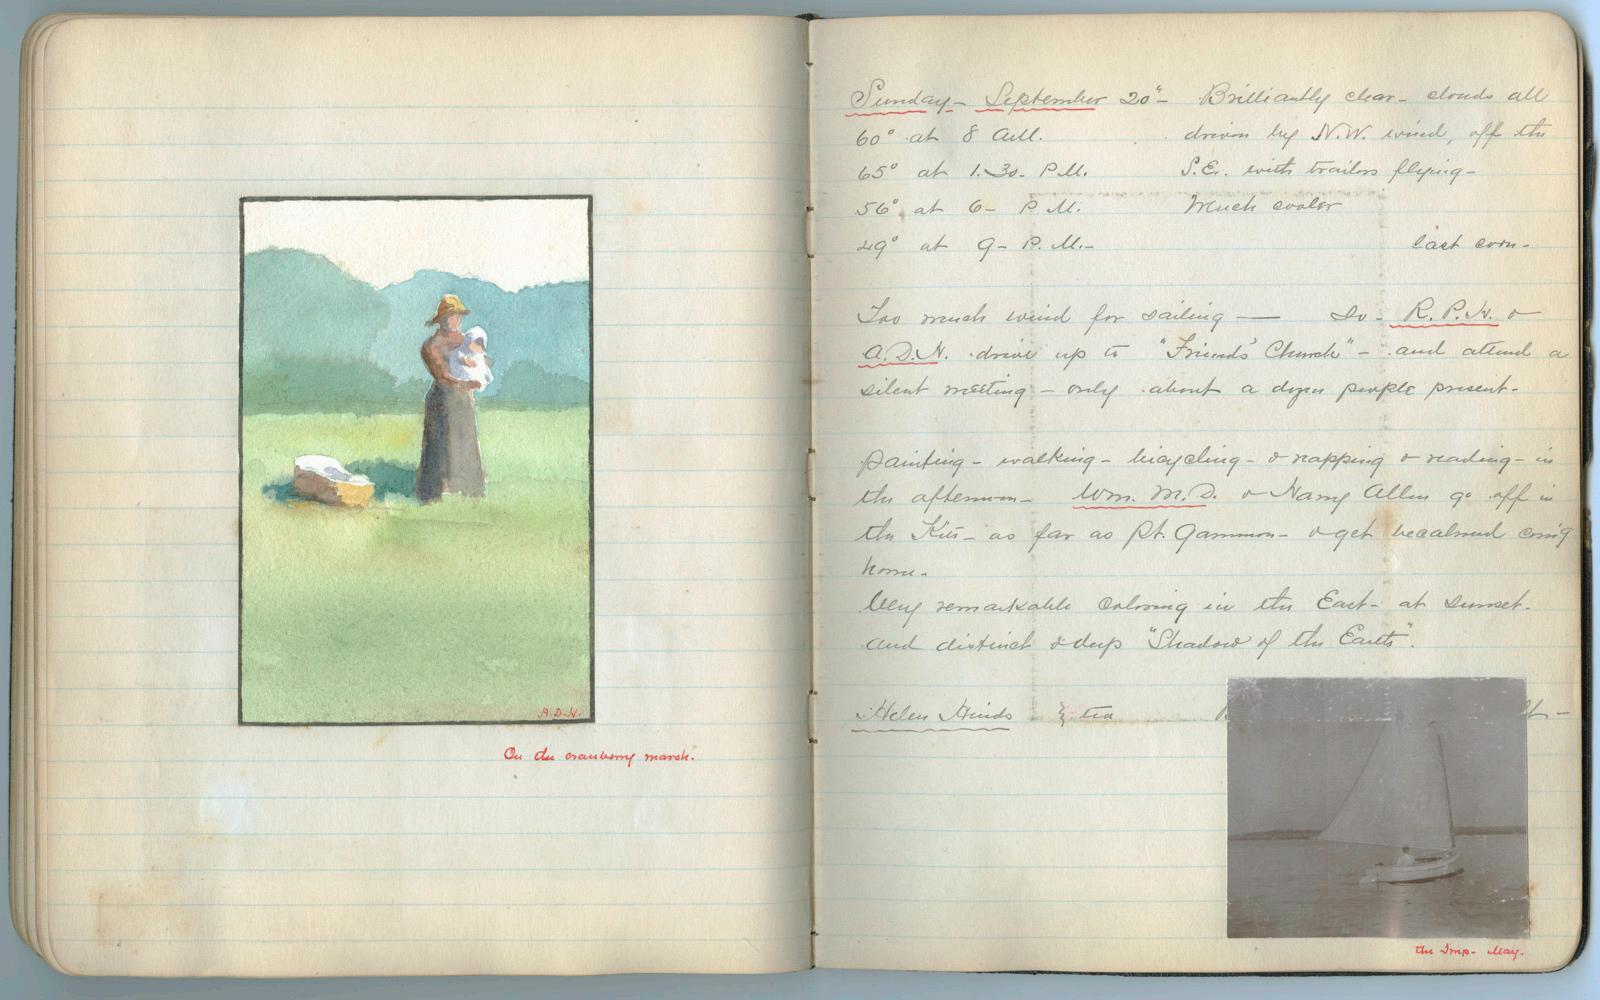 A.D.H.
On the cranberry marsh.
Sunday - September 20" - Brilliantly clear - clouds all
60° at 8 A.M. driven by N.W. wind, off the
65° at 1.30. P.M. S.E. with trailers flying -
56° at 6 - P.M. Much cooler
49° at 9 - P.M. - last corn -
Too much wind for sailing — So - R.P.H. &
A.D.H. drive up to "Friends' Church" - and attend a
silent meeting - only about a dozen people present -
Painting - walking - bicycling - & napping & reading - in
the afternoon - Wm. M.D. & Harry Allen go off in
the Kit - as far as Pt. Gammon - & get becalmed com'g
home -
Very remarkable coloring in the East - at sunset -
and distinct & deep "Shadow of the Earth".
Helen Hinds } tea
the Imp - May.